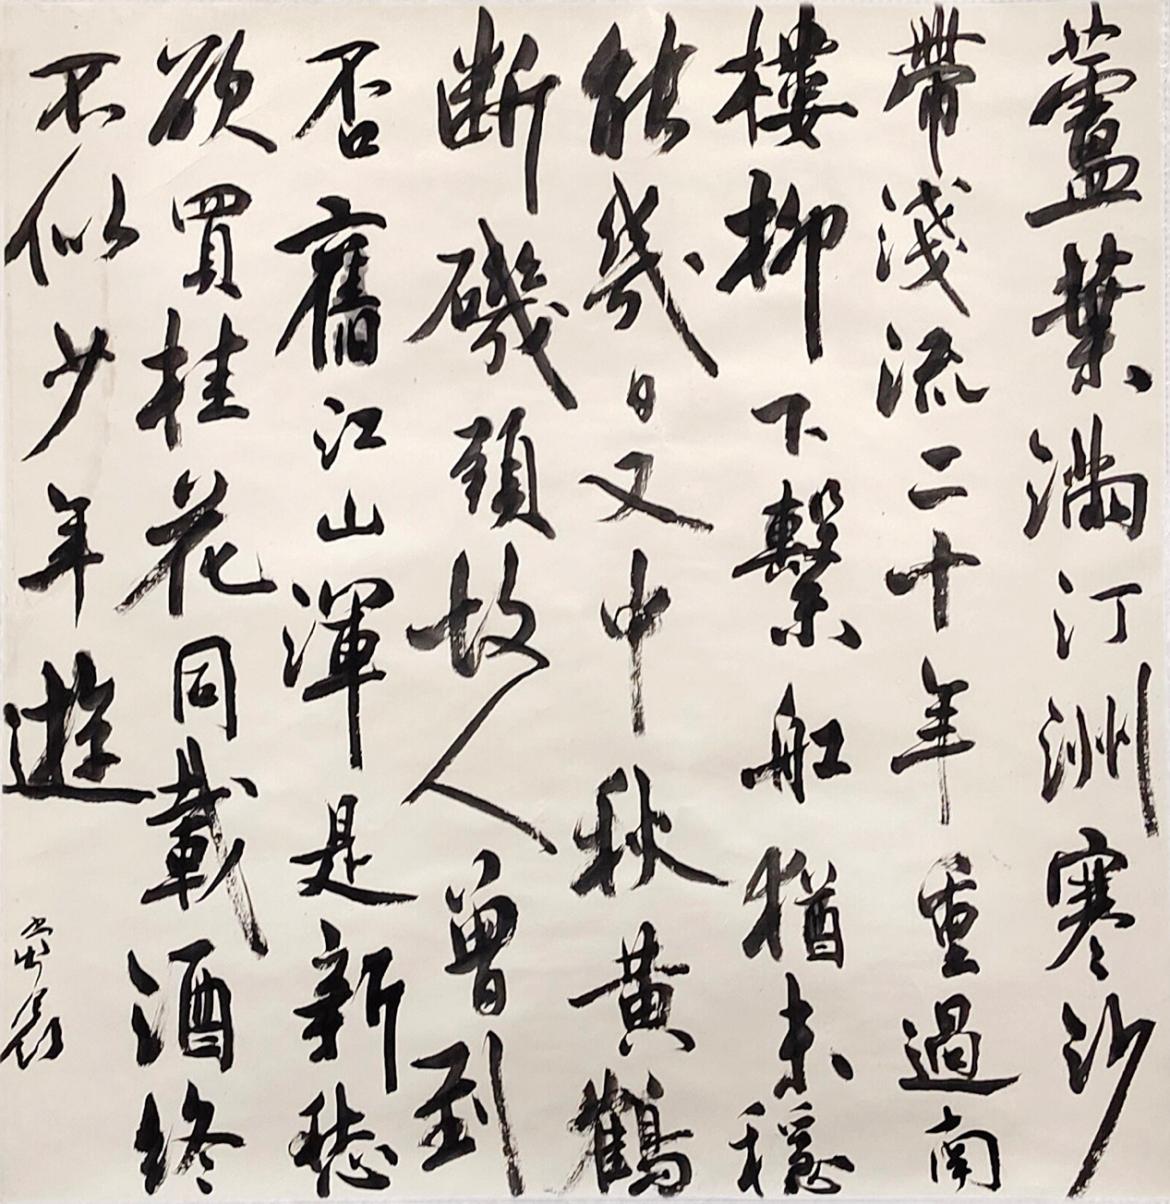 蘆葉滿汀洲寒沙
帶淺流二十年重過南
樓柳下繫船猶未穩
能幾日又中秋黃鶴
断磯頭故人曾到
否舊江山渾是新愁
欲買桂花同載酒终
不似少年遊